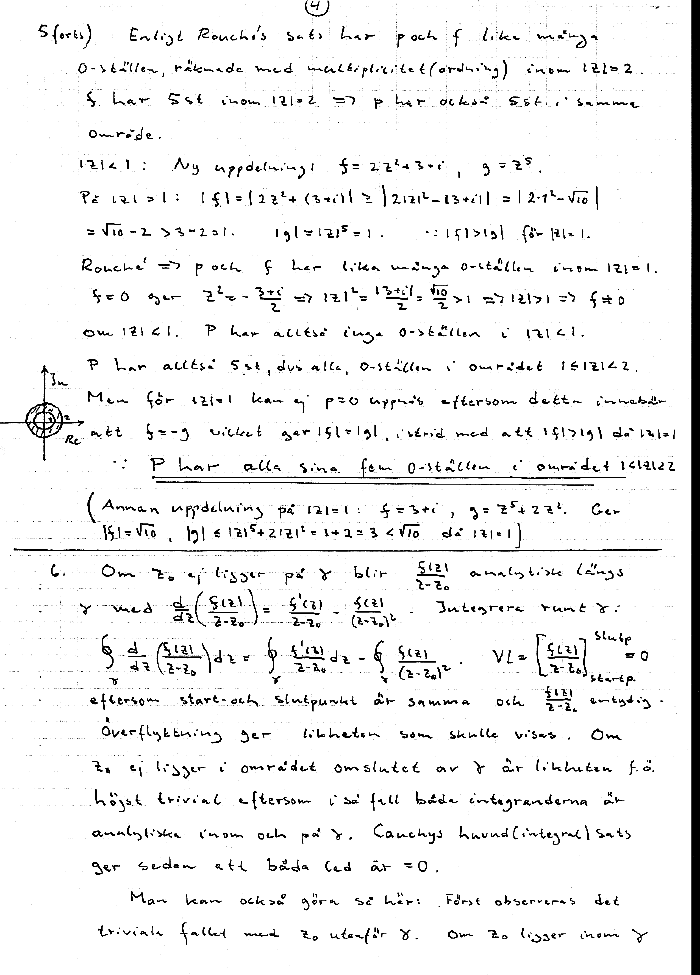 4
5 (forts) Enligt Rouché's sats har p och f lika många
0-ställen, räknade med multiplicitet (ordning) inom |z|=2.
f har 5 st inom |z|=2 => p har också 5 st i samma
område.
|z|<1: Ny uppdelning: f=2z²+3+i, g=z⁵.
På |z|=1: |f|=|2z²+(3+i)| ≥ |2|z|²-|3+i|| = |2·1²-√10|
=√10-2 >3-2=1. |g|=|z|⁵=1. ∵ |f|>|g| för |z|=1.
Rouché => p och f har lika många 0-ställen inom |z|=1.
f=0 ger z²=-(3+i)/2 => |z|²=|3+i|/2=√10/2>1 =>|z|>1 => f≠0
om |z|<1. P har alltså inga 0-ställen i |z|<1.
P har alltså 5 st, dvs alla, 0-ställen i området 1≤|z|<2.
Im
Men för |z|=1 kan ej p=0 uppnås eftersom detta innebär
1 2
Re
att f=-g vilket ger |f|=|g|, i strid med att |f|>|g| då |z|=1
∵ P har alla sina fem 0-ställen i området 1<|z|<2
(Annan uppdelning på |z|=1: f=3+i, g=z⁵+2z². Ger
|f|=√10, |g| ≤ |z|⁵+2|z|²=1+2=3<√10 då |z|=1)
6. Om z₀ ej ligger på γ blir f(z)/(z-z₀) analytisk längs
γ med d/dz(f(z)/(z-z₀)) = f'(z)/(z-z₀) - f(z)/(z-z₀)². Integrera runt γ:
∮γ d/dz(f(z)/(z-z₀))dz = ∮γ f'(z)/(z-z₀) dz - ∮γ f(z)/(z-z₀)². VL=[f(z)/(z-z₀)] slutp startp =0
eftersom start-och slutpunkt är samma och f(z)/(z-z₀) entydig.
Överflyttning ger likheten som skulle visas. Om
z₀ ej ligger i området omslutet av γ är likheten f.ö.
högst trivial eftersom i så fall båda integranderna är
analytiska inom och på γ. Cauchys huvud(integral)sats
ger sedan att båda led är =0.
Man kan också göra så här: Först observeras det
triviala fallet med z₀ utanför γ. Om z₀ ligger inom γ